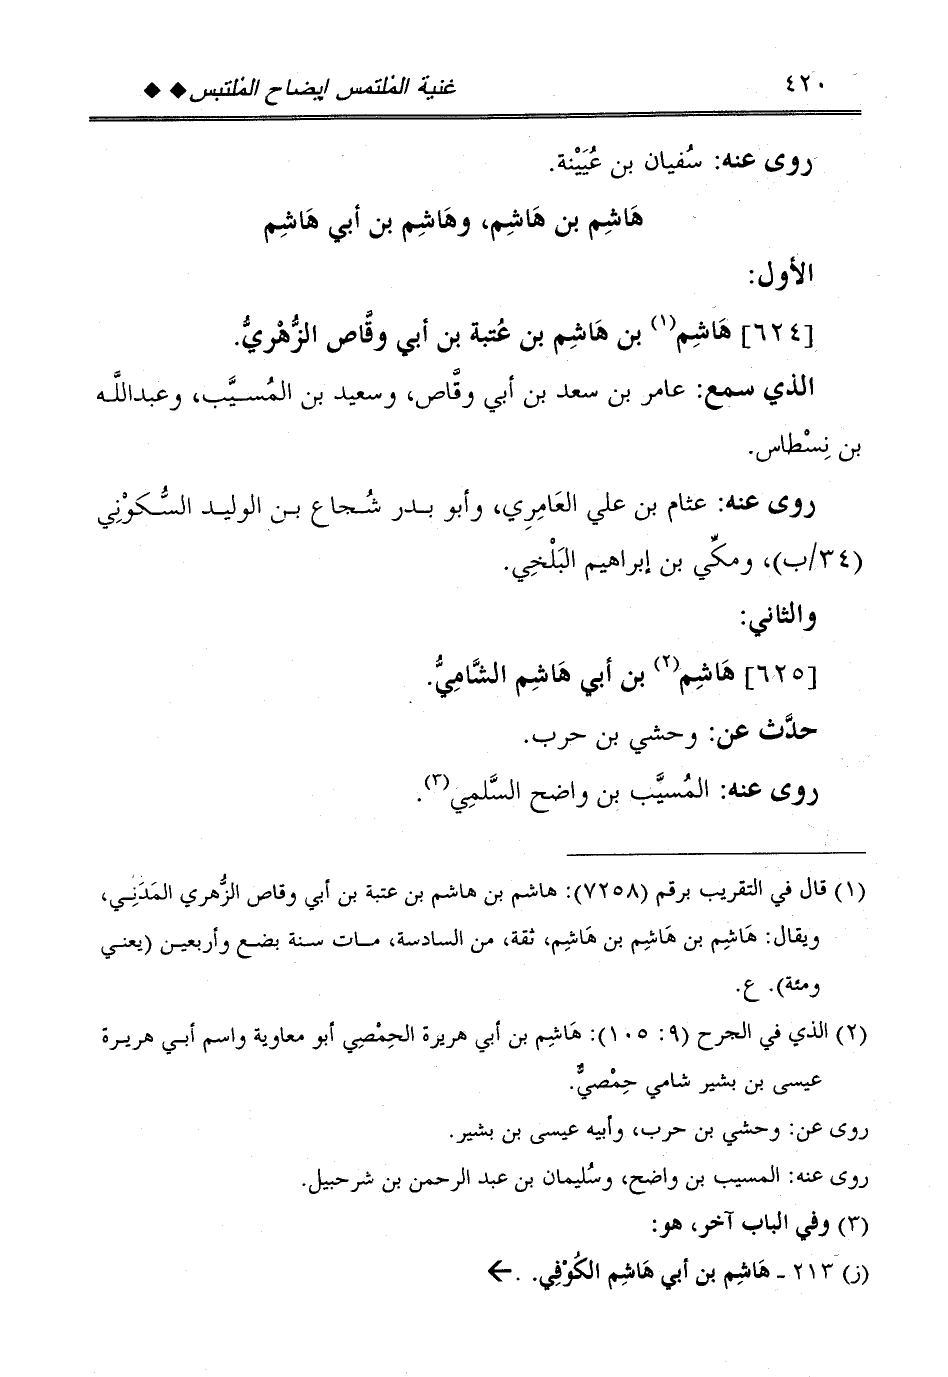 ٤٢٠ غنية الملتمس إيضاح الملتبس ◆◆
روى عنه: سُفيان بن عُيَيْنة.
هَاشِم بن هَاشِم، وهَاشِم بن أبي هَاشِم
الأول:
[٦٢٤] هَاشِم(١) بن هَاشِم بن عُتبة بن أبي وقَّاص الزُّهْريُّ.
الذي سمع: عامر بن سعد بن أبي وقَّاص، وسعيد بن المُسيَّب، وعبدالله
بن نِسْطاس.
روى عنه: عثام بن علي العَامِري، وأبو بدر شُجاع بن الوليد السُّكوْنِي
(٣٤/ب)، ومكِّي بن إبراهيم البَلْخِي.
والثاني:
[٦٢٥] هَاشِم(٢) بن أبي هَاشِم الشَّامِيُّ.
حدَّث عن: وحشي بن حرب.
روى عنه: المُسيَّب بن واضح السَّلمِي(٣).
(١) قال في التقريب برقم (٧٢٥٨): هاشم بن هاشم بن عتبة بن أبي وقاص الزُّهري المَدَنِي،
ويقال: هَاشِم بن هَاشِم بن هَاشِم، ثقة، من السادسة، مات سنة بضع وأربعين (يعني
ومئة). ع.
(٢) الذي في الجرح (٩: ١٠٥): هَاشِم بن أبي هريرة الحِمْصِي أبو معاوية واسم أبي هريرة
عيسى بن بشير شامي حِمْصيٌّ.
روى عن: وحشي بن حرب، وأبيه عيسى بن بشير.
روى عنه: المسيب بن واضح، وسُليمان بن عبد الرحمن بن شرحبيل.
(٣) وفي الباب آخر، هو:
(ز) ٢١٣ - هَاشِم بن أبي هَاشِم الكُوْفِي. . ←